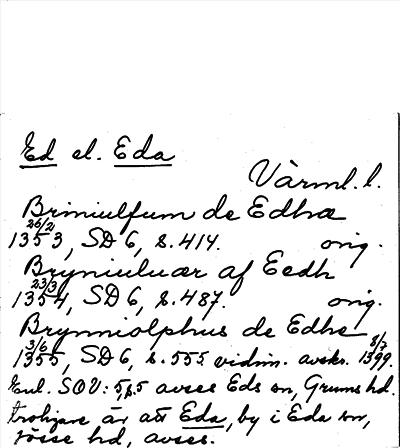 Ed el. Eda
Värml. l.
Briniulfum de Edhæ
26/2 1353, SD 6, s. 414. orig.
Bryniuluær af Eedh
23/3 1354, SD 6, s. 487. orig.
Brynniolphus de Edhe
3/6 1355, SD 6, s. 555 vidim. avskr. 8/7 1399.
Enl. SOV: 5, s. 5 avses Eds sn, Grums hd.
troligare är att Eda, by i Eda sn,
Jösse hd, avses.